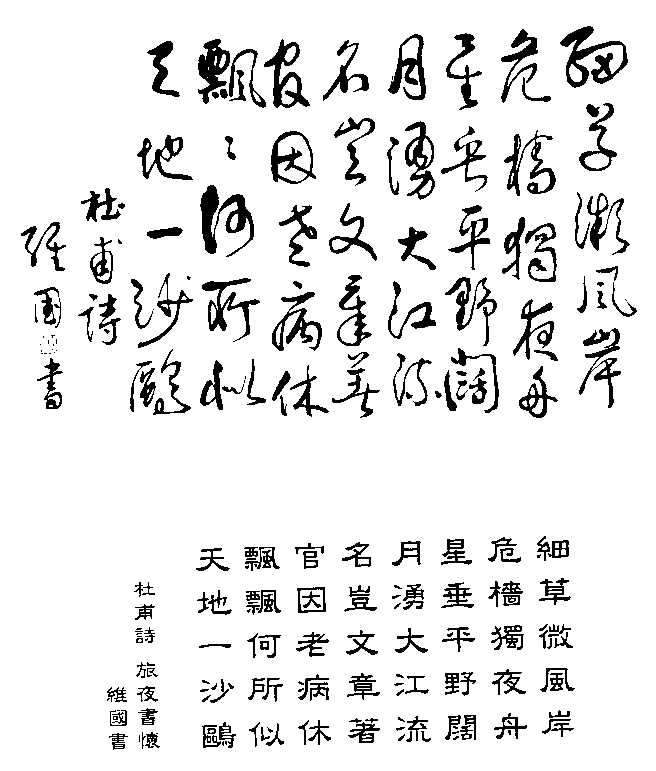 細草微風岸
危檣獨夜舟
星垂平野闊
月湧大江流
名豈文章著
官因老病休
飄〻何所似
天地一沙鷗
杜甫詩
維國書
細草微風岸
危檣獨夜舟
星垂平野闊
月湧大江流
名豈文章著
官因老病休
飄飄何所似
天地一沙鷗
杜甫詩 旅夜書懷
維國書